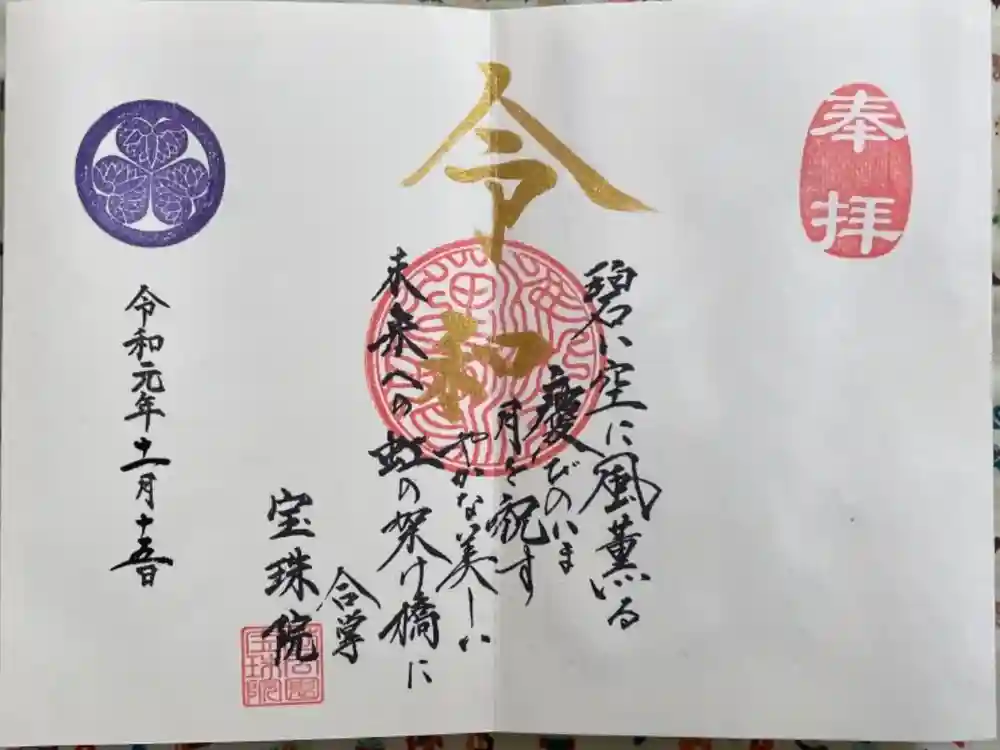 奉拝
令和
碧い空に風薫る
慶びのいま
月を祝す
やかな美しい
未来への虹の架け橋に
合掌
宝珠院
令和元年十一月十五日